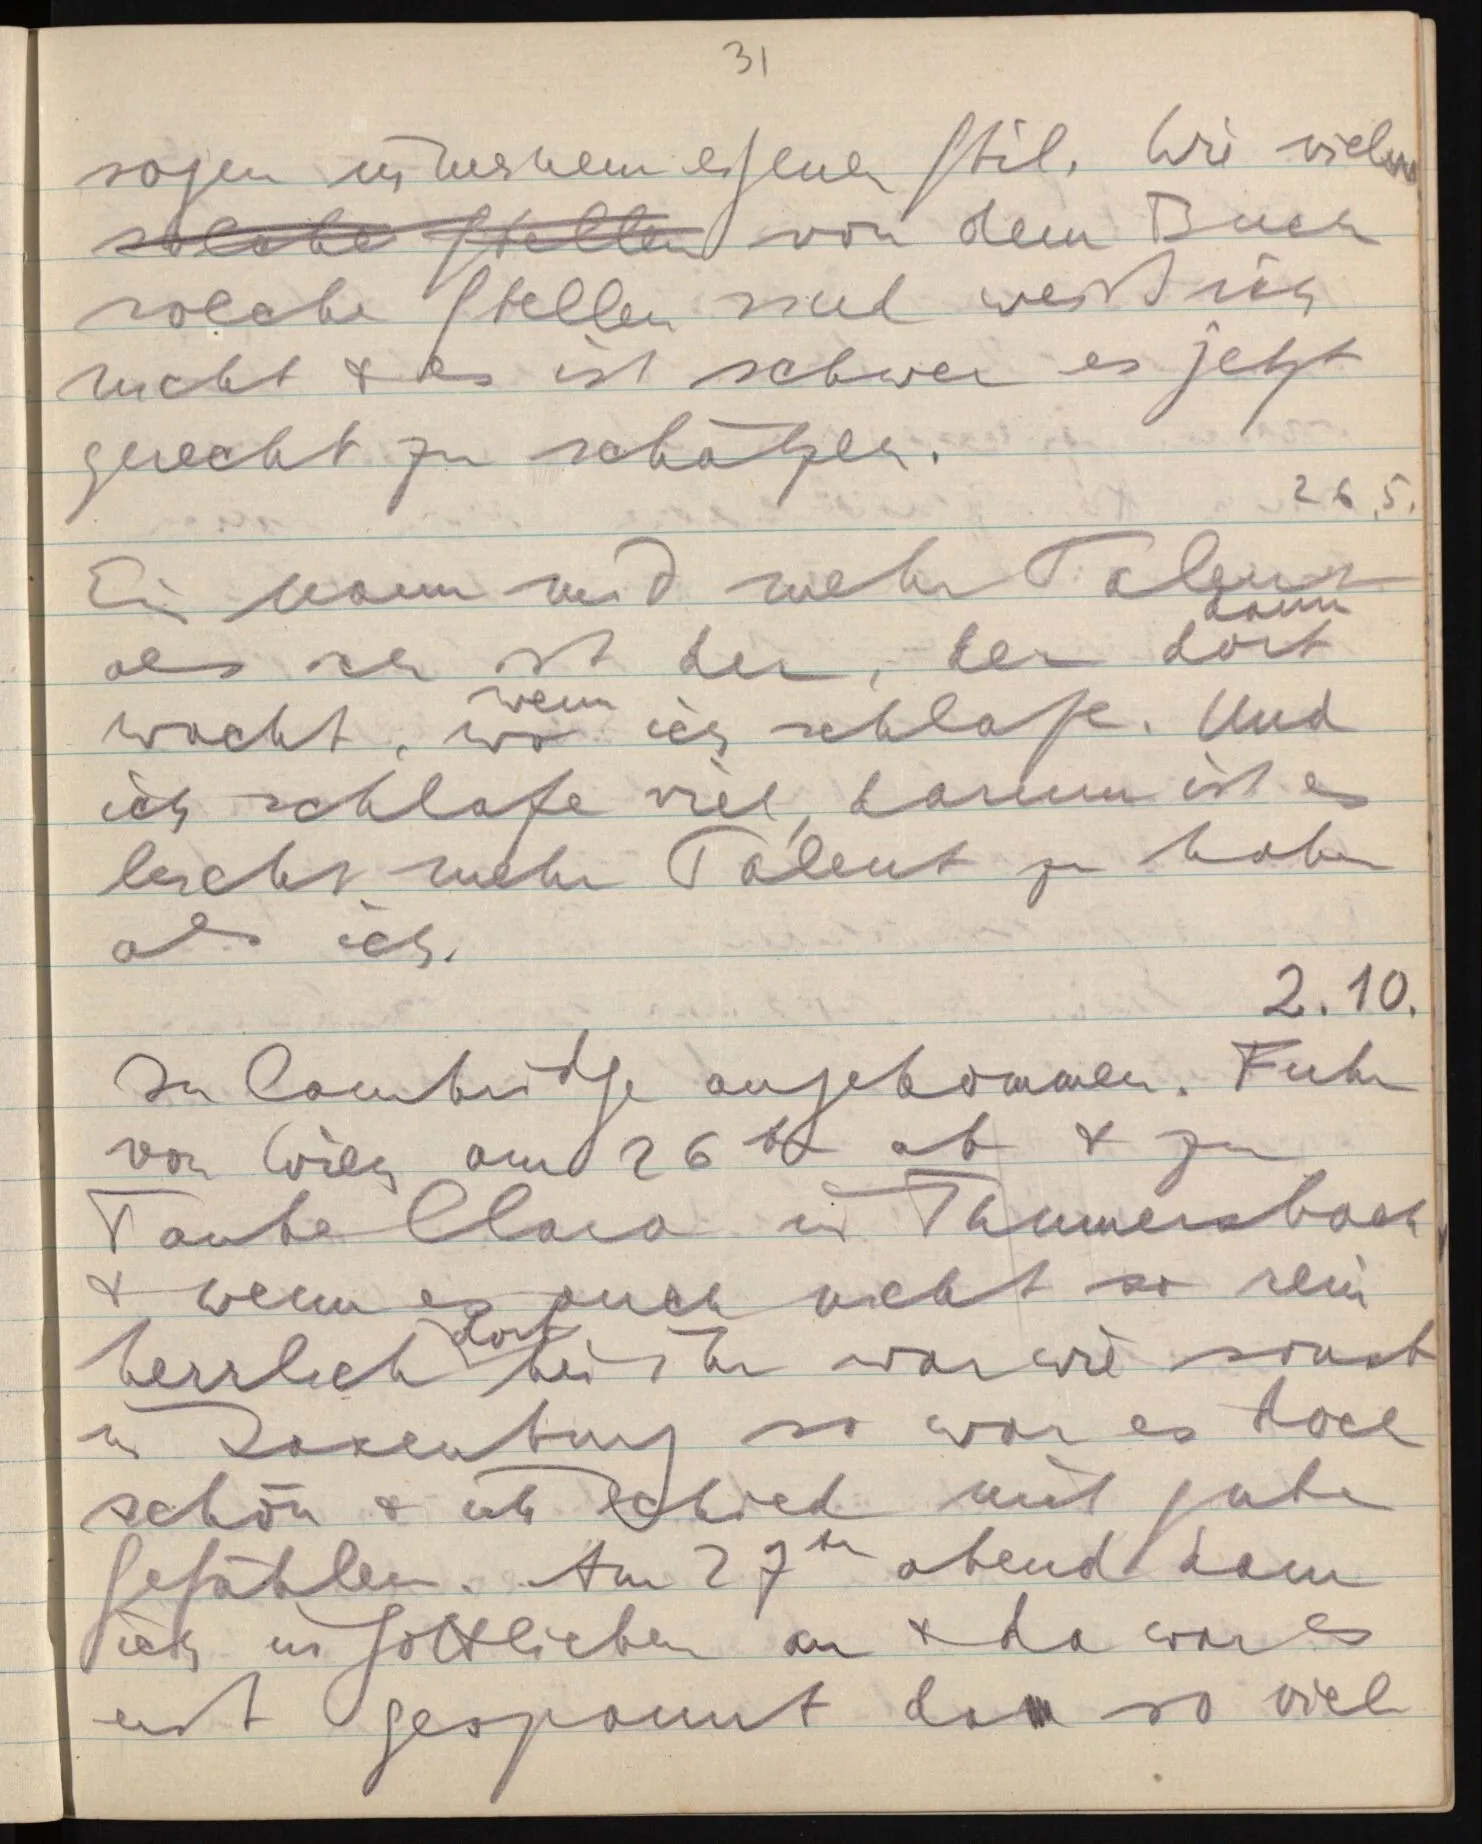 31
sagen in meinem eigenen Stil. Wie viele
solche Stellen von dem Buch
solche Stellen sind weiß ich
nicht & es ist schwer es jetzt
gerecht zu schätzen.
26.5.
Ein Mann mit mehr Talent
dann
als ich ist der, der dort
wenn
wacht, wo ich schlafe. Und
ich schlafe viel, darum ist es
leicht mehr Talent zu haben
als ich.
2.10.
In Cambridge angekommen. Fuhr
von Wien am 26ten ab & zu
Tante Clara in Thumersbach
& wenn es auch nicht so rein
dort
herrlich bei ihr war wie sonst
in Laxenburg so war es doch
schön & ich schied mit guten
Gefühlen. Am 27ten abend kam
ich in Gottlieben an & da war es
erst gespannt da so viel